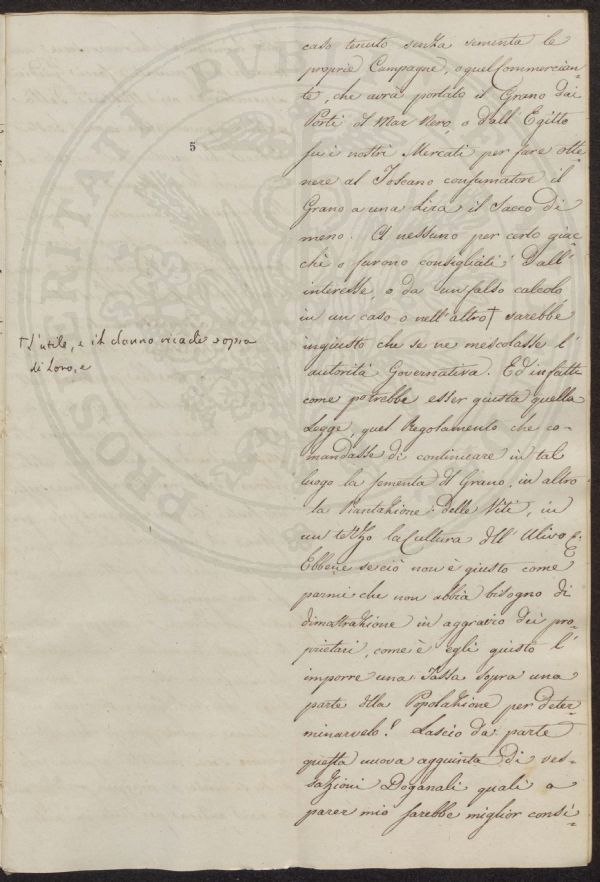 5
caso tenuto senza sementa le
proprie Campagne, o quel Commercian-
te, che avrà portato il Grano dai
Porti d Mar Nero, o dall' Egitto
su i nostri Mercati per fare otte-
nere al Toscano consumatore il
Grano a una Lira il Sacco di
meno. A nessuno per certo giac
chè o furono consigliati dall'
interesse, o da un falso calcolo
in un caso o nell'altro† sarebbe
ingiusto che se ne mescolasse l'
autorità Governativa. Ed infatti
come potrebbe esser giusta quella
Legge, quel Regolamento che co-
mandasse di continuare in tal
luogo la sementa d Grano, in altro
la Piantazione delle Viti, in
un terzo la Cultura dll' Ulivo?
Ebbene se ciò non è giusto come
parmi che non abbia bisogno di
dimostrazione in aggravio dei pro-
prietari, come è egli giusto l'
imporre una Tassa sopra una
parte dlla Popolazione per deter-
minarvelo? Lascio da parte
questa nuova aggiunta di ves-
sazioni Doganali quali a
parer mio sarebbe miglior consi-
† L'utile, e il danno ricade sopra
di Loro, e
PROSPERITATI PVB